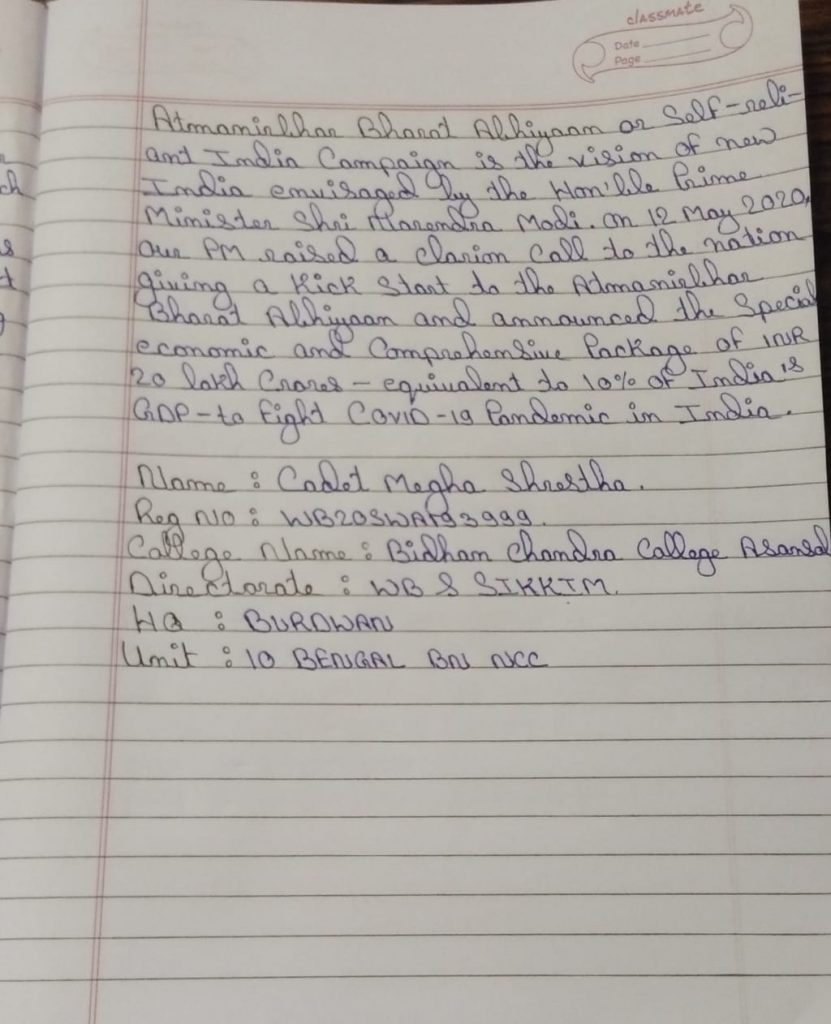 classmate
Date
Page
Atmanirbhar Bharat Abhiyaan or Self-reli-
ant India Campaign is the vision of new
India envisaged by the Hon'ble Prime
Minister Shri Narendra Modi. On 12 May 2020,
our PM raised a clarion call to the nation
giving a Kick Start to the Atmanirbhar
Bharat Abhiyaan and announced the Special
economic and Comprehensive Package of INR
20 lakh Crores - equivalent to 10% of India's
GDP - to Fight COVID-19 Pandemic in India.
Name : Cadet Megha Shrestha.
Reg NO :
College Name : Bidhan Chandra College Asansol
Directorate : WB & SIKKIM.
HQ : BURDWAN
Unit : 10 BENGAL BN NCC
ch
s
t